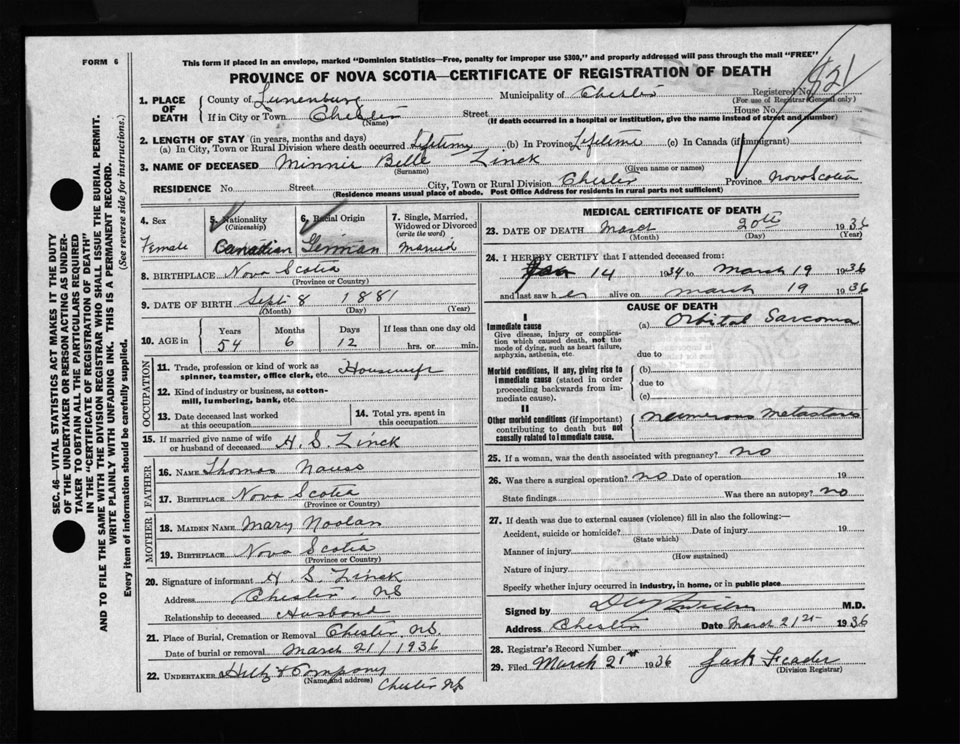 FORM 6
This form if placed in an envelope, marked "Dominion Statistics—Free, penalty for improper use $300," and properly addressed will pass through the mail "FREE"
PROVINCE OF NOVA SCOTIA—CERTIFICATE OF REGISTRATION OF DEATH
821
SEC. 46—VITAL STATISTICS ACT MAKES IT THE DUTY
OF THE UNDERTAKER OR PERSON ACTING AS UNDER-
TAKER TO OBTAIN ALL THE PARTICULARS REQUIRED
IN THE "CERTIFICATE OF REGISTRATION OF DEATH"
AND TO FILE THE SAME WITH THE DIVISION REGISTRAR WHO SHALL ISSUE THE BURIAL PERMIT.
WRITE PLAINLY WITH UNFADING INK. THIS IS A PERMANENT RECORD.
Every item of information should be carefully supplied. (See reverse side for instructions.)
1. PLACE OF DEATH
County of Lunenburg Municipality of Chester Registered No.
(For use of Registrar General only)
If in City or Town Chester Street House No.
(Name) (If death occurred in a hospital or institution, give the name instead of street and number)
2. LENGTH OF STAY (in years, months and days)
(a) In City, Town or Rural Division where death occurred Lifetime (b) In Province Lifetime (c) In Canada (if immigrant)
3. NAME OF DECEASED Minnie Belle Zinck
(Surname) (Given name or names)
RESIDENCE No. Street City, Town or Rural Division Chester Province Nova Scotia
(Residence means usual place of abode. Post Office Address for residents in rural parts not sufficient)
4. Sex 5. Nationality (Citizenship) 6. Racial Origin 7. Single, Married, Widowed or Divorced (write the word)
Female Canadian German Married
8. BIRTHPLACE Nova Scotia
(Province or Country)
9. DATE OF BIRTH Sept 8 1881
(Month) (Day) (Year)
10. AGE in Years Months Days If less than one day old
54 6 12 hrs. or min.
OCCUPATION
11. Trade, profession or kind of work as spinner, teamster, office clerk, etc. Housewife
12. Kind of industry or business, as cotton-mill, lumbering, bank, etc.
13. Date deceased last worked at this occupation
14. Total yrs. spent in this occupation
15. If married give name of wife or husband of deceased H. S. Zinck
FATHER
16. NAME Thomas Nauss
17. BIRTHPLACE Nova Scotia
(Province or Country)
MOTHER
18. MAIDEN NAME Mary
19. BIRTHPLACE Nova Scotia
(Province or Country)
20. Signature of informant H. S. Zinck
Address Chester, NS
Relationship to deceased Husband
21. Place of Burial, Cremation or Removal Chester, NS.
Date of burial or removal March 21 / 1936
22. UNDERTAKER & Company
(Name and address) Chester NS
MEDICAL CERTIFICATE OF DEATH
23. DATE OF DEATH March 20th 1936
(Month) (Day) (Year)
24. I HEREBY CERTIFY that I attended deceased from:
14 1934 to March 19 1936
and last saw her alive on March 19 1936
CAUSE OF DEATH
I
Immediate cause
Give disease, injury or complication which caused death, not the mode of dying, such as heart failure, asphyxia, asthenia, etc.
(a) Orbital Sarcoma
due to
Morbid conditions, if any, giving rise to immediate cause (stated in order proceeding backwards from immediate cause).
(b)
due to
(c)
II
Other morbid conditions (if important) contributing to death but not causally related to immediate cause.
numerous metastases
25. If a woman, was the death associated with pregnancy? no
26. Was there a surgical operation? no Date of operation 19
State findings Was there an autopsy? no
27. If death was due to external causes (violence) fill in also the following:—
Accident, suicide or homicide? Date of injury 19
(State which)
Manner of injury
(How sustained)
Nature of injury
Specify whether injury occurred in industry, in home, or in public place
Signed by M.D.
Address Chester Date March 21st 1936
28. Registrar's Record Number
29. Filed March 21st 1936 Jack
(Division Registrar)